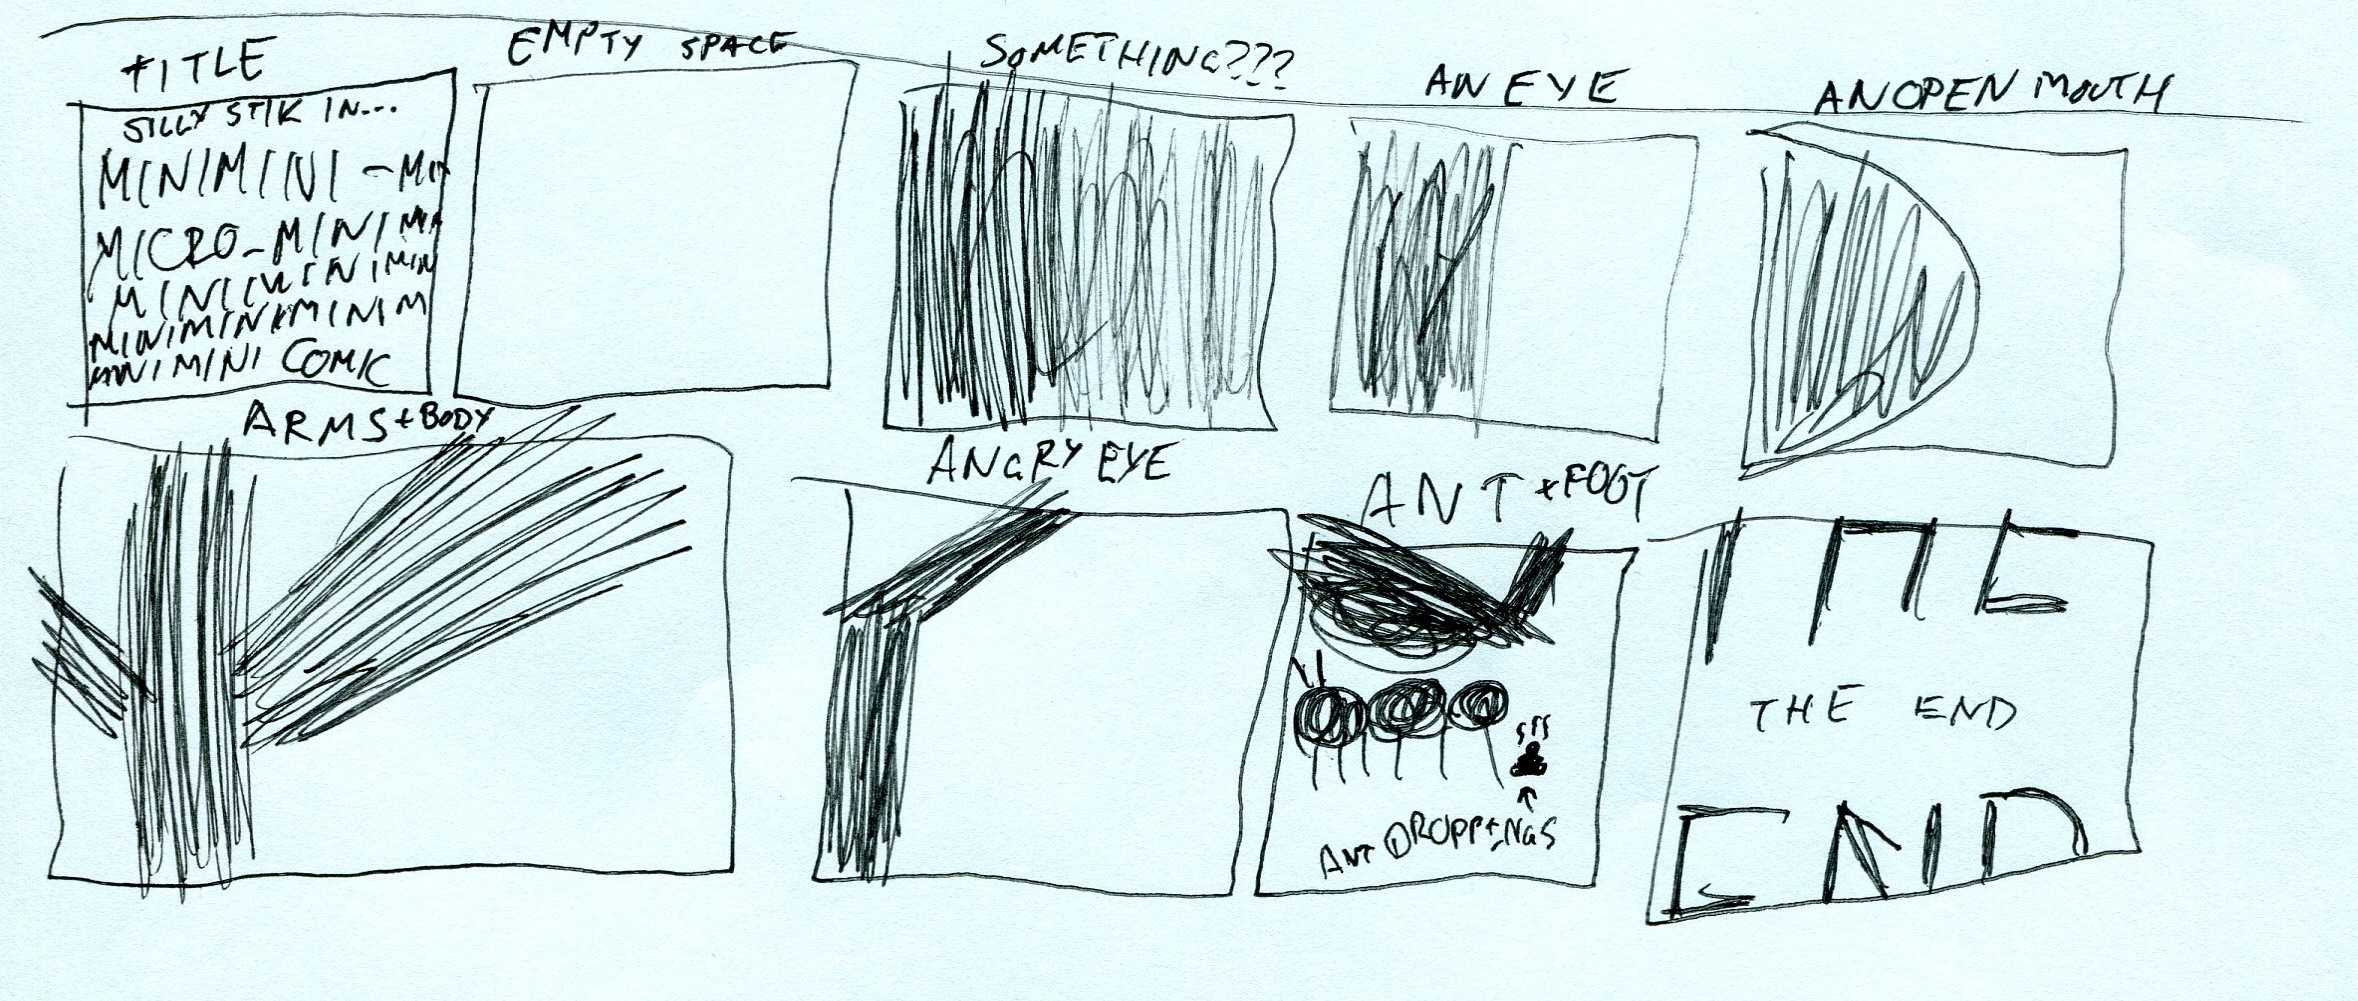 TITLE
SILLY STIK IN...
MINIMINI-MIN
MICRO-MINIMI
MINIMINIMIN
MINIMINIMINIM
MINIMINI COMIC
EMPTY SPACE
SOMETHING???
AN EYE
AN OPEN MOUTH
ARMS + BODY
ANGRY EYE
ANT + FOOT
ANT DROPPINGS
THE
THE END
END